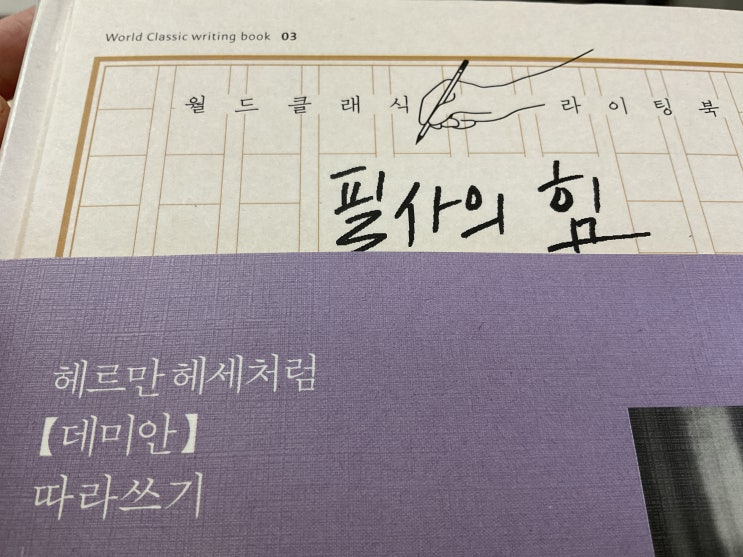 World Classic writing book 03
월드클래식 라이팅북
필사의 힘
헤르만 헤세처럼
【데미안】
따라쓰기